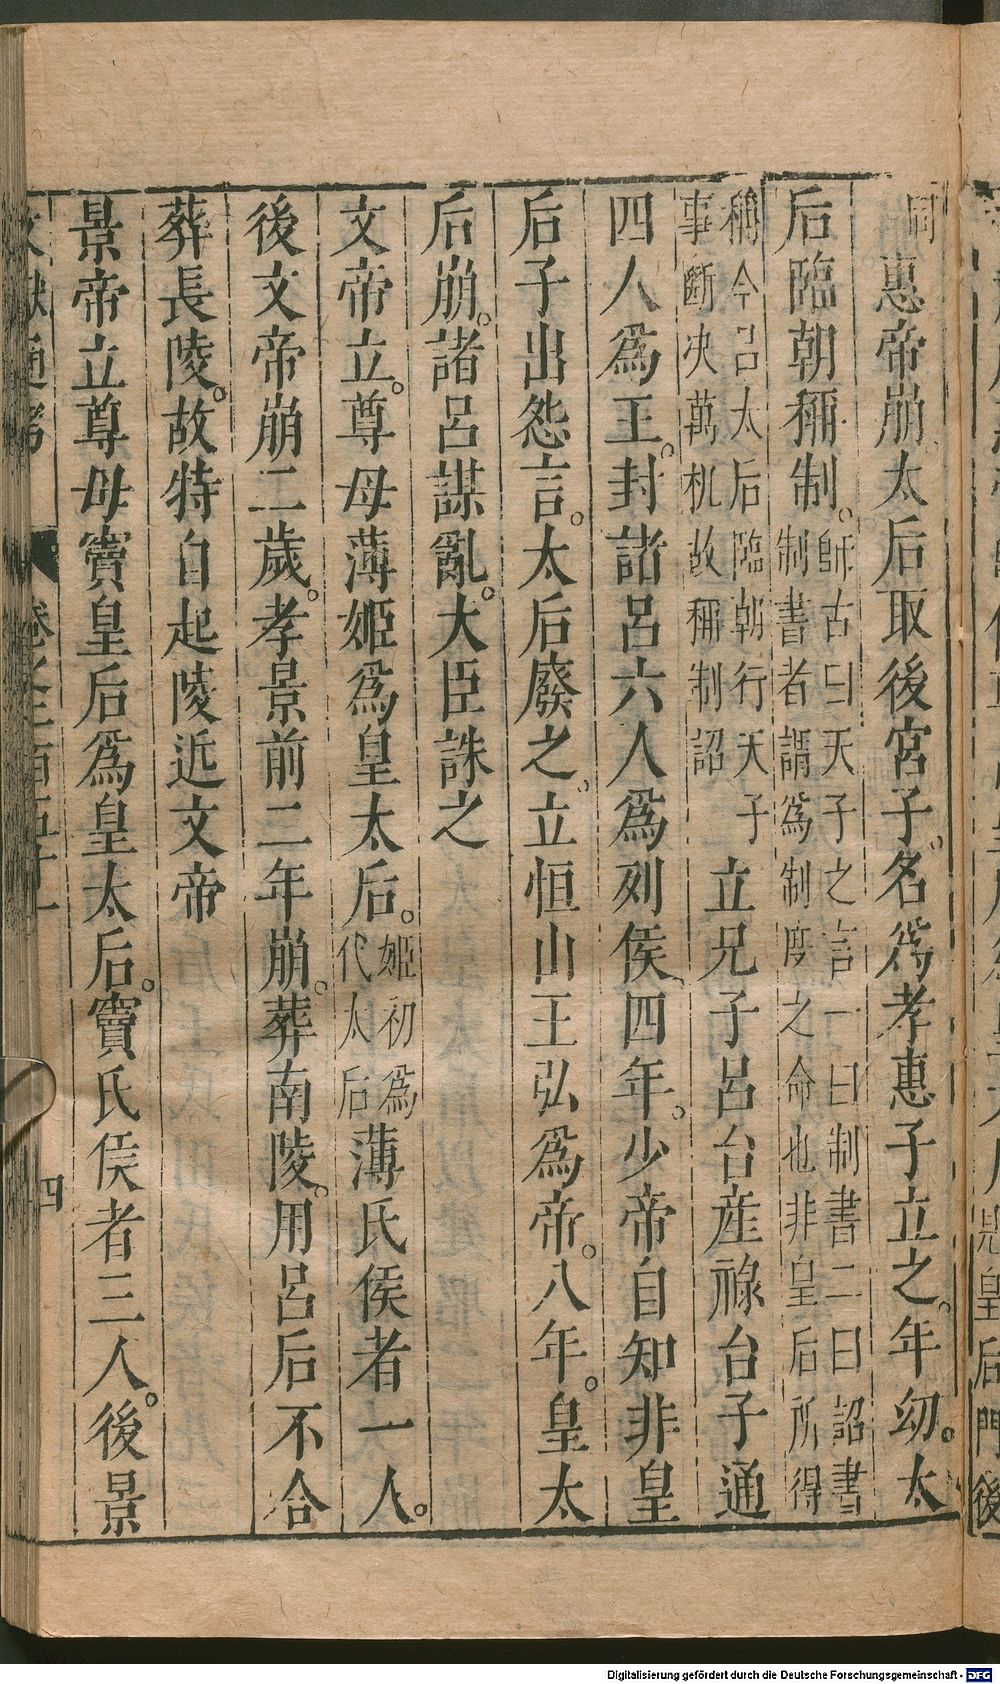 同惠帝崩太后取後宮子名爲孝惠子立之年幼太
后臨朝稱制師古曰天子之言一曰制書二曰詔書
制書者謂爲制度之命也非皇后所得
稱今呂太后臨朝行天子
事斷决萬机故稱制詔立兄子呂台産祿台子通
四人爲王封諸呂六人爲列侯四年少帝自知非皇
后子出怨言太后廢之立恒山王弘爲帝八年皇太
后崩諸呂謀亂大臣誅之
文帝立尊母薄姬爲皇太后姬初爲
代太后薄氏侯者一人
後文帝崩二歲孝景前二年崩葬南陵用呂后不合
葬長陵故特自起陵近文帝
景帝立尊母竇皇后爲皇太后竇氏侯者三人後景
通考
四
皇后
後
Digitalisierung gefördert durch die Deutsche Forschungsgemeinschaft - DFG